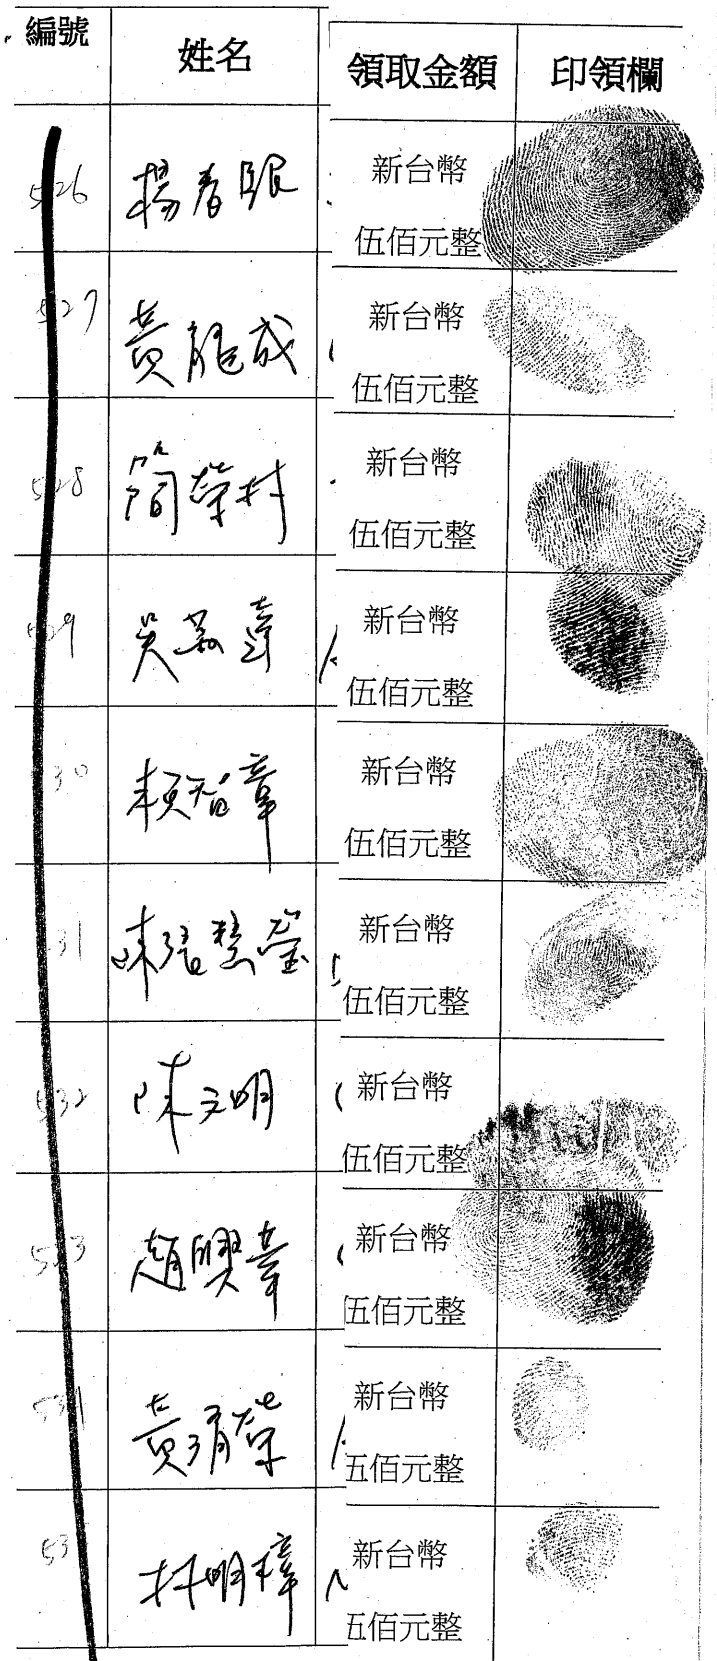 編號 姓名 領取金額 印領欄
526 楊春眼 新台幣
伍佰元整
527 黃龍成 新台幣
伍佰元整
528 簡榮村 新台幣
伍佰元整
529 吳 章 新台幣
伍佰元整
30 賴智章 新台幣
伍佰元整
31 陳 慧瑩 新台幣
伍佰元整
532 陳文明 新台幣
伍佰元整
533 趙興章 新台幣
伍佰元整
黃清榮 新台幣
五佰元整
53 林明樟 新台幣
五佰元整